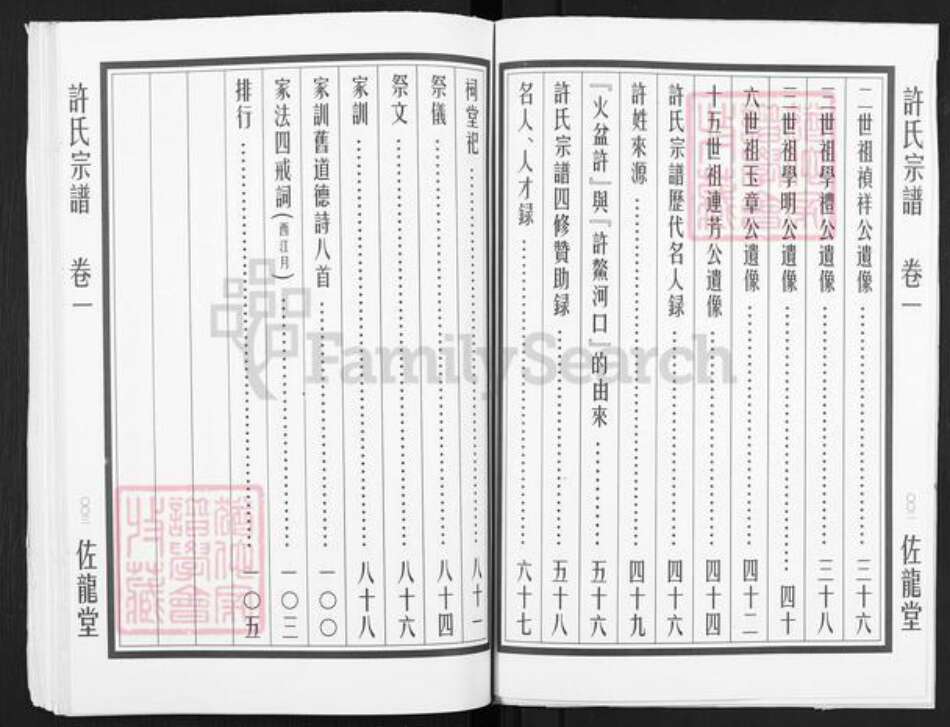 許氏宗譜 卷一
佐龍堂
二世祖禎祥公遺像 三十六
三世祖學禮公遺像 三十八
三世祖學明公遺像 四十
六世祖玉章公遺像 四十二
十五世祖連芳公遺像 四十四
許氏宗譜歷代名人録 四十六
許姓來源 四十九
『火盆許』與『許鰲河口』的由來 五十六
許氏宗譜四修贊助録 五十八
名人、人才録 六十七
祠堂祀 八十一
祭儀 八十四
祭文 八十六
家訓 八十八
家訓舊道德詩八首 一〇〇
家法四戒詞(西江月) 一〇三
排行 一〇五
許氏宗譜 卷一
佐龍堂
FamilySearch